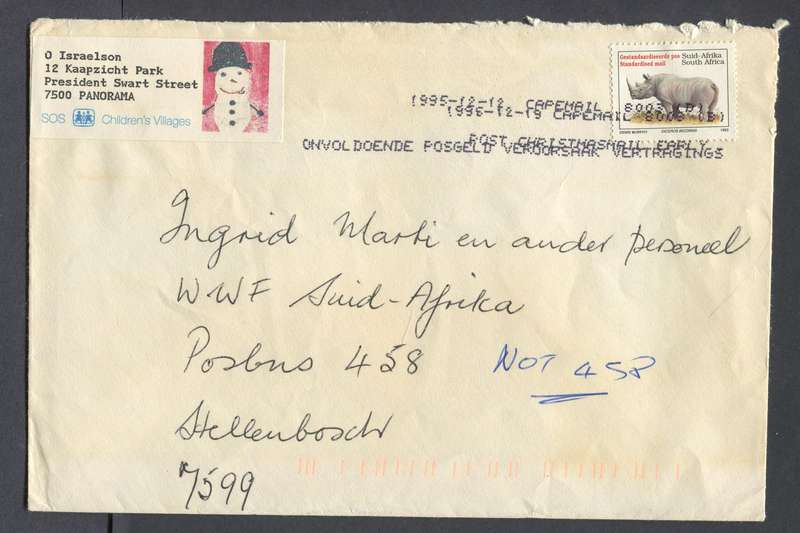 O Israelson
12 Kaapzicht Park
President Swart Street
7500 PANORAMA
SOS Children's Villages
Gestandaardiseerde pos Suid-Afrika
Standardised mail South Africa
1995-12-12 CAPEMAIL 8003 (B)
1995-12-19 CAPEMAIL 8003 (B)
POST CHRISTMASMAIL EARLY.
ONVOLDOENDE POSGELD VEROORSAAK VERTRAGINGS
Ingrid Marti en ander personeel
WWF Suid-Afrika
Posbus 458 NOT 458
Stellenbosch
7599